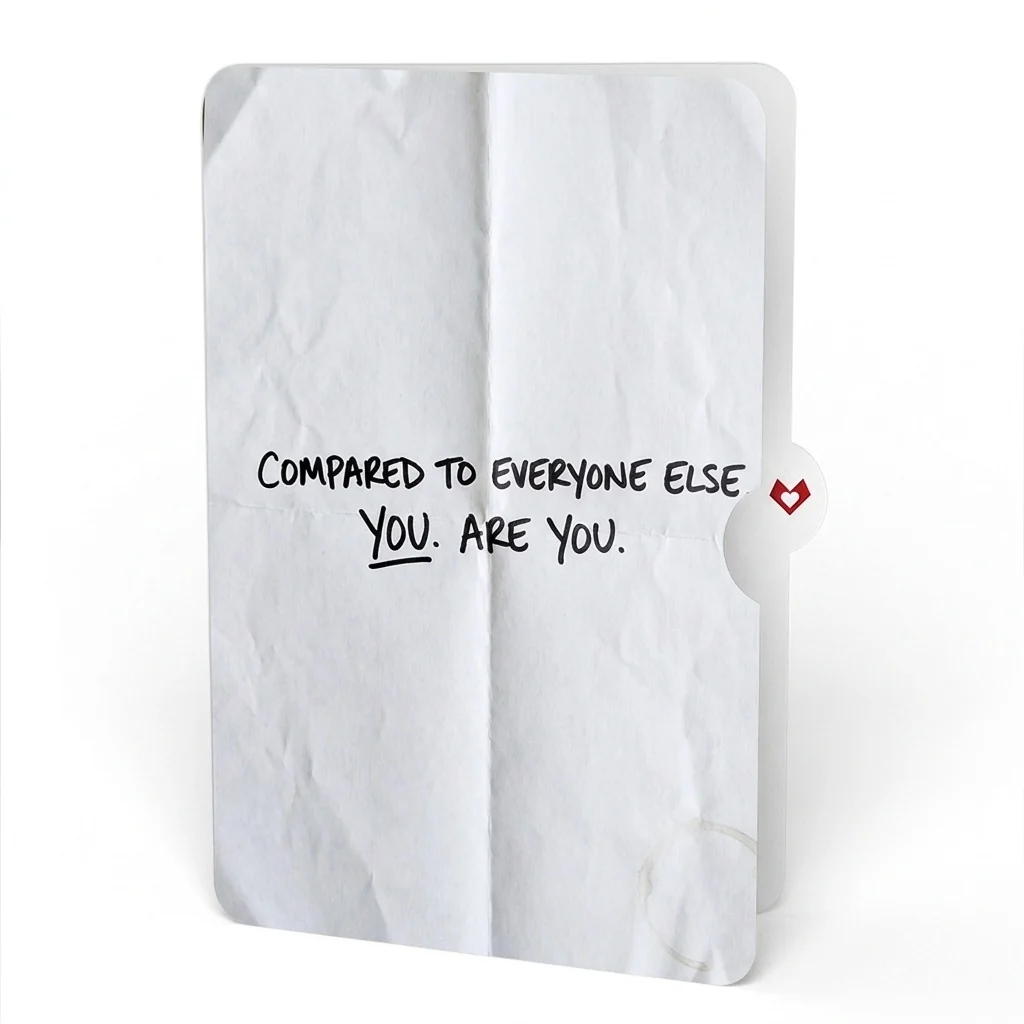 COMPARED TO EVERYONE ELSE
YOU. ARE YOU.